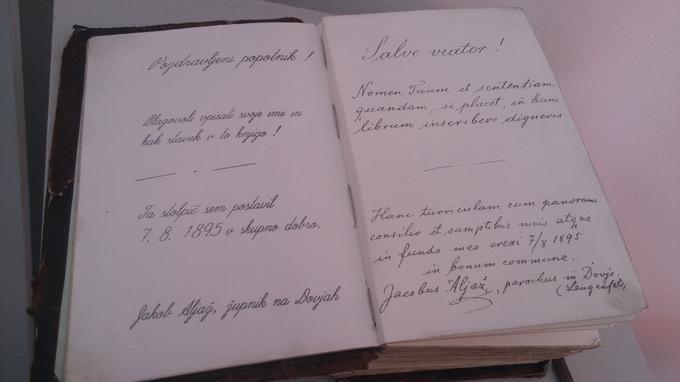 Pozdravljeni popotnik!
Blagovoli vpisati svoje ime in
kak stavek v to knjigo!
Ta stolpič sem postavil
7. 8. 1895 v skupno dobro.
Jakob Aljaž, župnik na Dovjah
Salve viator!
Nomen Tuum et sententiam
quandam, si placet, in hunc
librum inscribere digneris
Hanc turriculam cum panorama
consilio et sumptibus meis atque
in fundo meo erexi 7/8 1895
in bonum commune.
Jacobus Aljaž, parochus in Dovje.
(Lengenfeld)